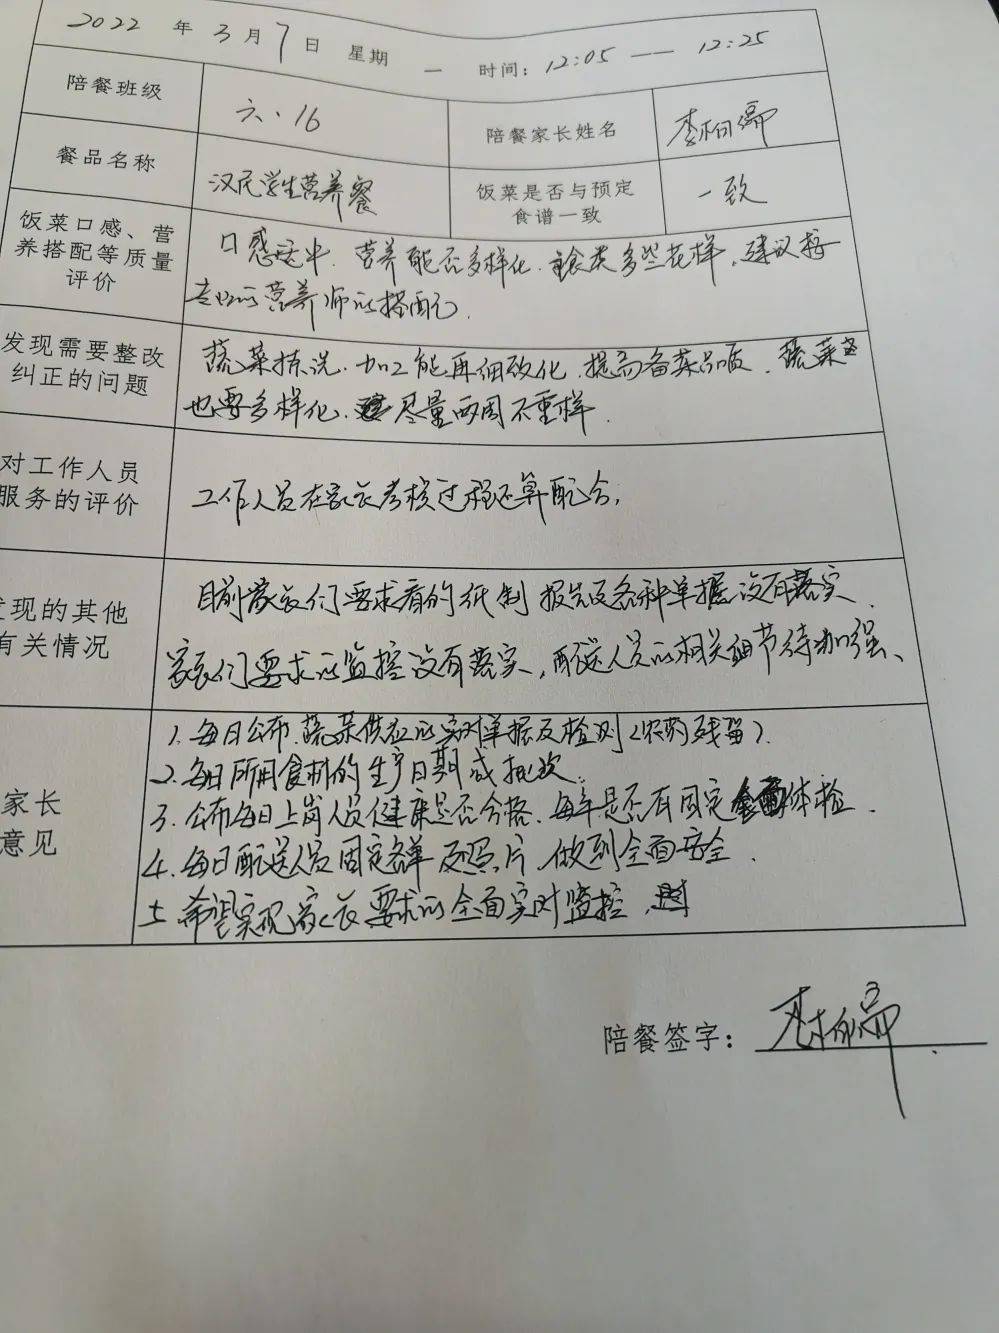 2022 年 3 月 7 日 星期 一 时间：12:05 —— 12:25
陪餐班级 六、16 陪餐家长姓名
餐品名称 汉民学生营养餐 饭菜是否与预定
食谱一致 一致
饭菜口感、营
养搭配等质量
评价
口感适中、营养能否多样化、主食类多些花样，建议按
专业的营养师的搭配。
发现需要整改
纠正的问题
蔬菜拣洗、加工能再细致化、提高备菜品质、蔬菜
也要多样化、尽量两周不重样。
对工作人员
服务的评价
工作人员在家长考核过程还算配合，
发现的其他
有关情况
目前家长们要求看的纸制报告及各种单据没有落实、
家长们要求的监控没有落实，配送人员的相关细节待加强、
家长
意见
1、每日公布、蔬菜供应的实时单据及检测（农药残留）.
2、每日所用食材的生产日期或批次.
3、公布每日上岗人员健康是否合格、每年是否有固定体检.
4、每日配送人员固定名单及照片，做到全面安全.
5、希望实现家长要求的全面实时监控，
陪餐签字：